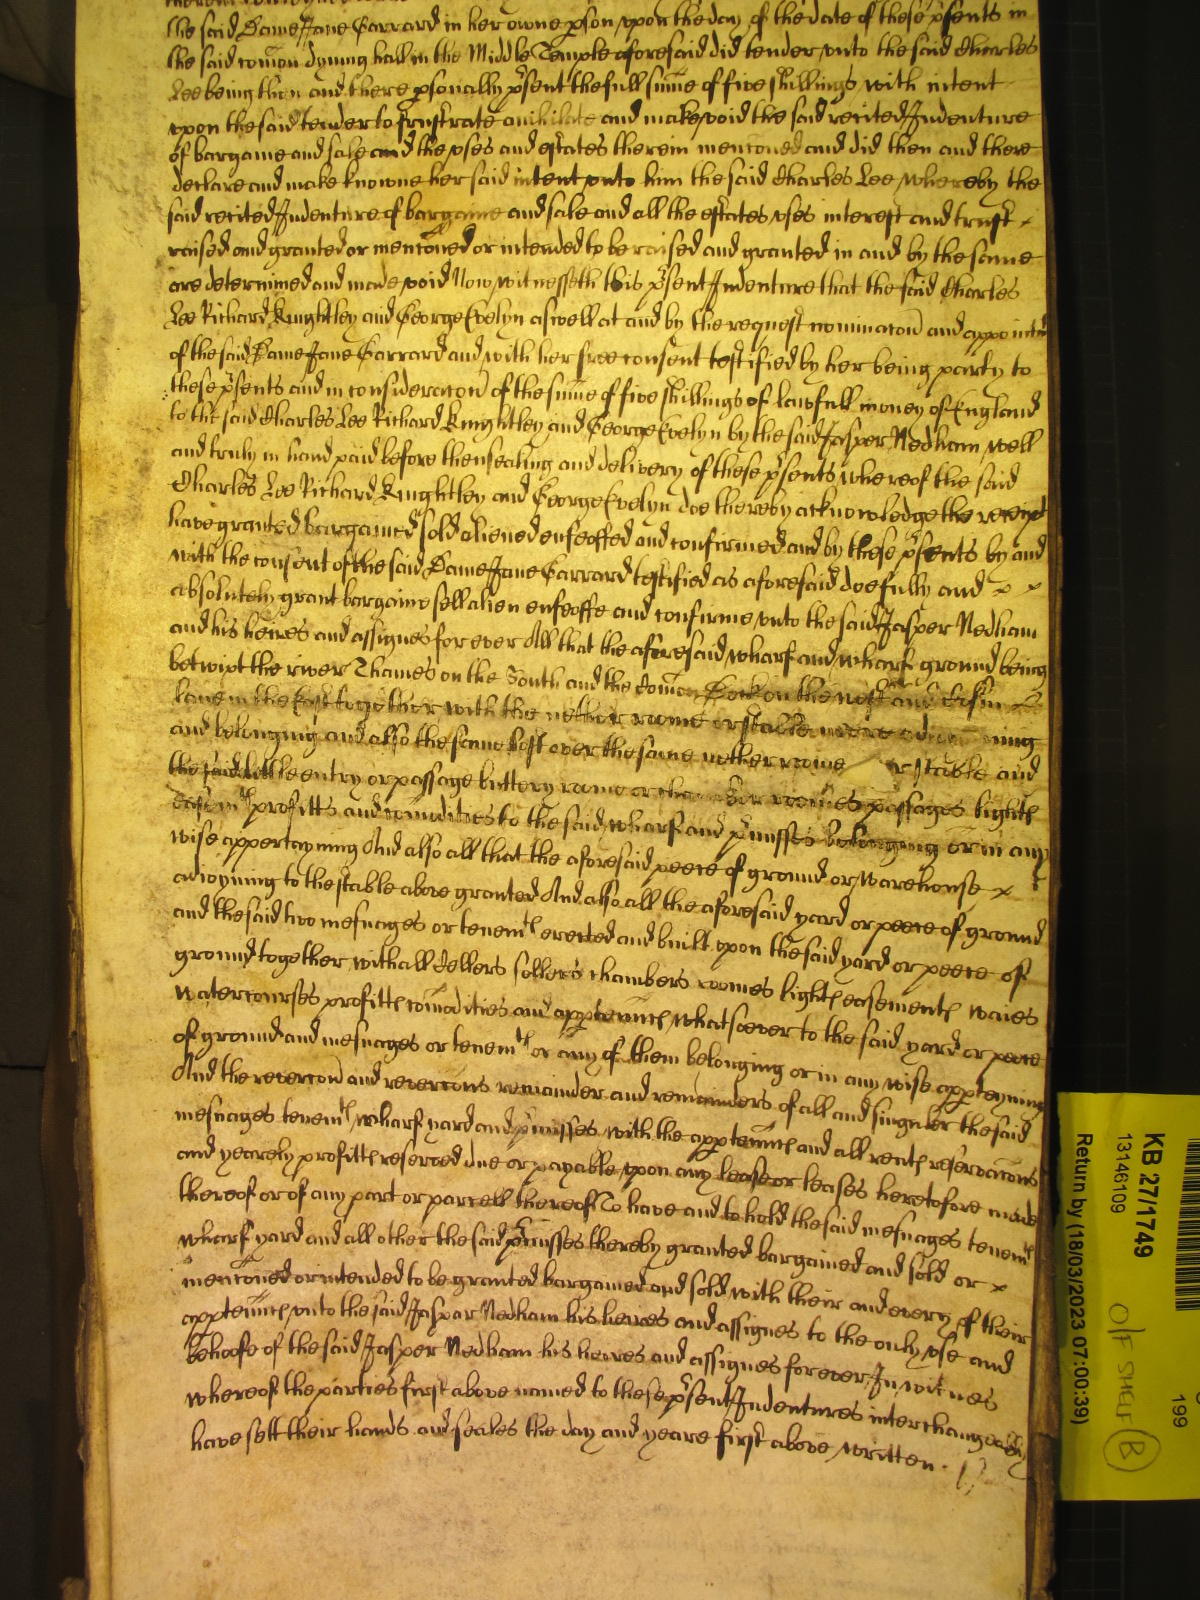 the said Dame Jane Garrard in her owne pson upon the day of the date of these psents in
the said comon dyning hall in the Middle Temple aforesaid did tender unto the said Charles
Lee being then and there psonally psent the full sume of five shillings with intent
upon the said tender to frustrate anihilate and make void the said recited Indenture
of bargaine and sale and the uses and estates therein menconed and did then and there
declare and make knowne her said intent unto him the said Charles Lee whereby the
said recited Indenture of bargaine and sale and all the estates uses interest and trust
raised and granted or menconed or intended to be raised and granted in and by the same
are determined and made void Now witnesseth this psent Indenture that the said Charles
Lee Richard Knightley and George Evelyn aswell at and by the request nominacon and appointmt
of the said Dame Jane Garrard and with her free consent testified by her being party to
these psents and in consideracon of the sume of five shillings of lawfull money of England
to the said Charles Lee Richard Knightley and George Evelyn by the said Jasper Nedham well
and truly in hand paid before thensealing and delivery of these psents whereof the said
Charles Lee Richard Knightley and George Evelyn doe thereby acknowledge the receipt
have granted bargained sold aliened enfeoffed and confirmed and by these psents by and
with the consent of the said Dame Jane Garrard testified as aforesaid doe fully and
absolutely grant bargaine sell alien enfeoffe and confirme unto the said Jasper Nedham
and his heires and assignes for ever All that the aforesaid wharf and wharf ground being
betwixt the river Thames on the South and the comon Dock on the west and
lane in the East together with the nether roome or stable
and belonging and also the same loft over the same nether roome or stable and
the said little entry or passage buttery roome or roomes passages lights
easemts profitts and comodities to the said wharf and pmisses belonging or in any
wise appertayning And also all that the aforesaid peece of ground or warehouse
adioyning to the stable above granted And also all the aforesaid yard or peece of ground
and the said two messuages or tenemts erected and built upon the said yard or peece of
ground together with all Cellers sollers chambers roomes lights easements waies
watercourses profitts comodities and apptenncs whatsoever to the said yard or peece
of ground and messuages or tenemts or any of them belonging or in any wise apptayning
And the revercon and revercons remainder and remainders of all and singuler the said
messuages tenemts wharf yard and pmisses with the apptenncs and all rents reservacons
and yearely profitts reserved due or payable upon any lease or leases heretofore made
thereof or of any part or parcell thereof To have and to hold the said messuages tenemts
wharf yard and all other the said pmisses thereby granted bargained and sold or
menconed or intended to be granted bargained and sold with their and every of their
apptenncs unto the said Jasper Nedham his heires and assignes to the only use and
behoofe of the said Jasper Nedham his heires and assignes forever In witnes
whereof the parties first above named to these psent Indentures interchangeably
have sett their hands and seales the day and yeare first above written.
KB 27/1749
13146109
Return by (18/03/2023 07:00:39)
199
O/F SHELF B